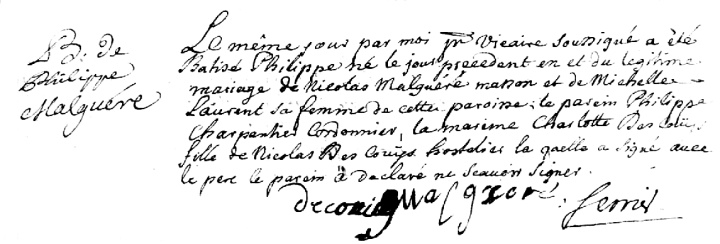 B. de
Philippe
Malguéré
Le même jour par moi pr Vicaire soussigné a été
Batisé Philippe né le jour précédent en et du legitime
mariage de Nicolas Malguéré masson et de Michelle
Laurent sa femme de cette paroisse; le parein Philippe
Charpentier Cordonnier, la mareme Charlotte Des Couïs
fille de Nicolas Des Couïs hostelier la quelle a signé avec
le pere le parein a declaré ne scavoir signer.